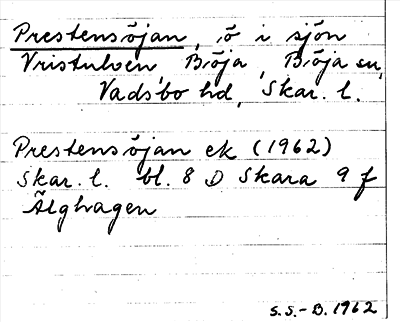 Prestensöjan, ö i sjön
Vristulven, Böja, Böja sn,
Vadsbo hd, Skar. l.
Prestensöjan ek (1962)
Skar. l. bl. 8 D Skara 9 f
Älghagen
S.S.-B. 1962